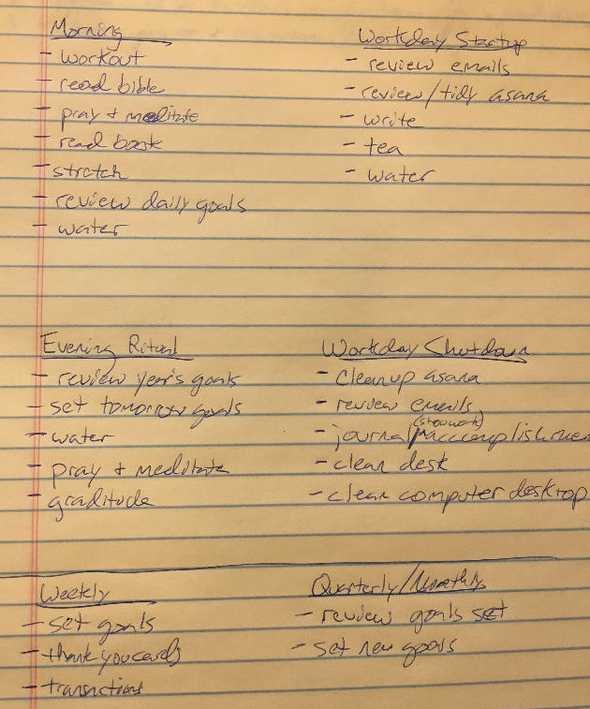 Morning
- workout
- read bible
- pray + meditate
- read book
- stretch
- review daily goals
- water
Workday Startup
- review emails
- review/tidy asana
- write
- tea
- water
Evening Ritual
- review year's goals
- set tomorrow goals
- water
- pray + meditate
- graditude
Workday Shutdown
- cleanup asana
- review emails
- journal/
- clean desk
- clean computer desktop
Weekly
- set goals
- thank you cards
- transactions
Quarterly/Monthly
- review goals set
- set new goals